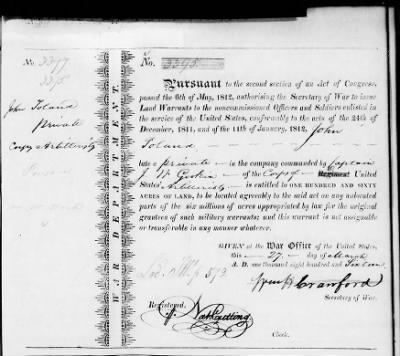 No. 3397
3395
John Toland
Private
Corps Artillerists
WAR DEPARTMENT.
No. 3395
Pursuant to the second section of an Act of Congress,
passed the 6th of May, 1812, authorising the Secretary of War to issue
Land Warrants to the noncommissioned Officers and Soldiers enlisted in
the service of the United States, conformably to the acts of the 24th of
December, 1811, and of the 11th of January, 1812, John
Toland
late a private in the company commanded by Captain
J. N. of the Corps of Regiment United
States Artillerists is entitled to ONE HUNDRED AND SIXTY
ACRES OF LAND, to be located agreeably to the said act on any unlocated
part of the six millions of acres appropriated by law for the original
grantees of such military warrants; and this warrant is not assignable
or transferable in any manner whatever.
GIVEN at the War Office of the United States,
this 27 day of March
A. D. one thousand eight hundred and Sixteen
Wm H Crawford
Secretary of War.
Registered,
Nath Cutting
Clerk.